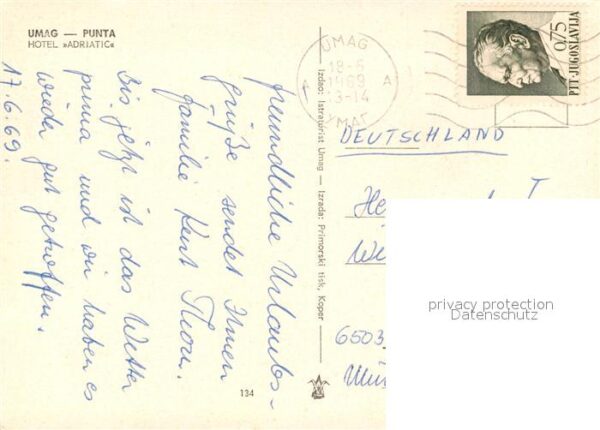 UMAG — PUNTA
HOTEL »ADRIATIC«
17.6.69.
freundliche Urlaubs-
grüße sendet Ihnen
Familie Kurt
Bis jetzt ist das Wetter
prima und wir haben es
wieder gut getroffen.
134
Izdao: Istraturist Umag — Izrada: Primorski tisk, Koper
UMAG
1969
13-14
A
UMAG
0,75
PTT JUGOSLAVIJA
DEUTSCHLAND
6503
privacy protection
Datenschutz